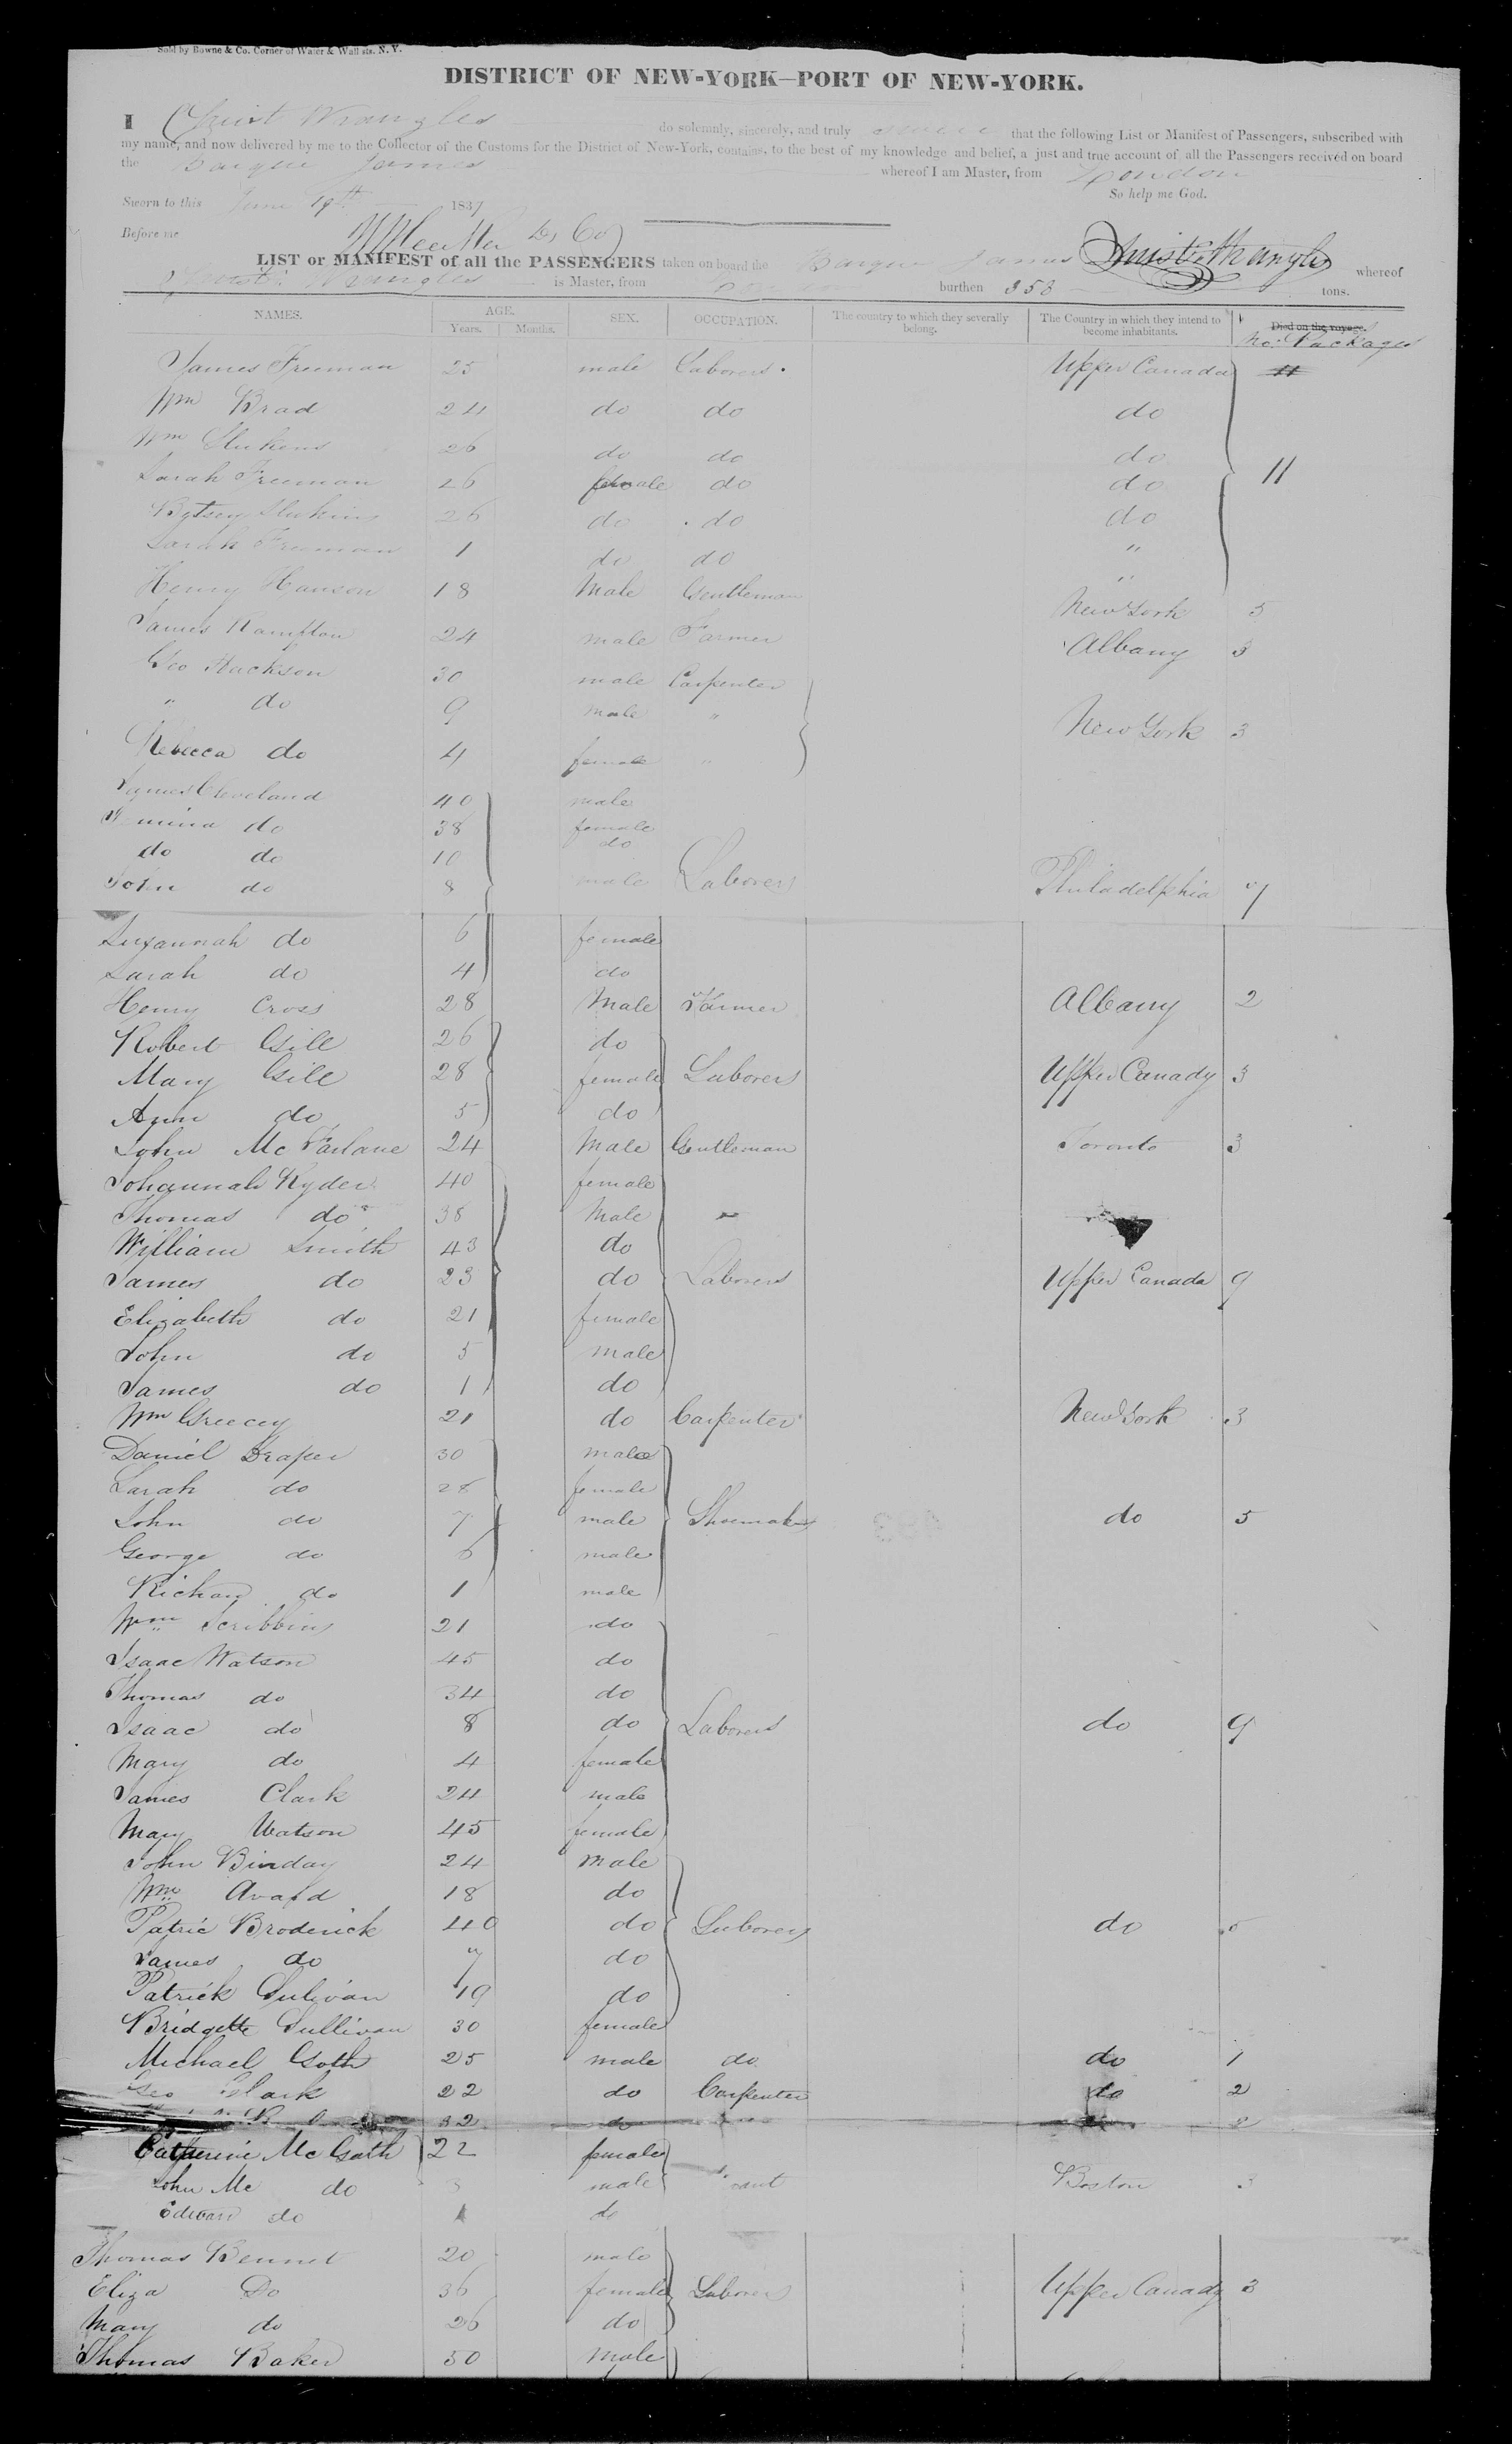 Sold by Bowne & Co. Corner of Water & Wall sts. N. Y.
DISTRICT OF NEW-YORK—PORT OF NEW-YORK.
I Christ Wrangles do solemnly, sincerely, and truly swear that the following List or Manifest of Passengers, subscribed with
my name, and now delivered by me to the Collector of the Customs for the District of New-York, contains, to the best of my knowledge and belief, a just and true account of all the Passengers received on board
the Barque James whereof I am Master, from London
So help me God.
Sworn to this June 19th 1837
Before me
LIST or MANIFEST of all the PASSENGERS taken on board the Barque James whereof
Wrangles is Master, from burthen 353 tons.
NAMES. AGE. SEX. OCCUPATION. The country to which they severally belong. The Country in which they intend to become inhabitants. Died on the voyage.
Years. Months. No. Packages
James Freeman 25 male Laborers Upper Canada 11
Wm Brad 24 do do do
Wm 26 do do do
Sarah Freeman 26 female do do 11
Betsey 26 do do do
Sarah Freeman 1 do do "
Henry Hanson 18 Male Gentleman " New York 5
James Hampton 24 male Farmer Albany 3
Geo Hackson 30 male Carpenter
" do 9 male " New York 3
Rebecca do 4 female "
James Cleveland 40 male
do 38 female
do do 10 do
John do 8 male Laborers Philadelphia 7
Suzannah do 6 female
Sarah do 4 do
Henry Cross 28 Male Farmer Albany 2
Robert Gill 26 do
Mary Gill 28 female Laborers Upper Canady 3
Ann do 5 do
John McFarlane 24 Male Gentleman Toronto 3
Johannah Ryder 40 female
Thomas do 38 Male
William Smith 43 do
James do 23 do Laborers Upper Canada 9
Elizabeth do 21 female
John do 5 male
James do 1 do
Wm Greecey 21 do Carpenter New York 3
Daniel Draper 30 male
Sarah do 28 female
John do 7 male Shoemaker do 5
George do 6 male
Richard do 1 male
Wm Scribbins 21 do
Isaac Watson 45 do
Thomas do 34 do
Isaac do 8 do Laborers do 9
Mary do 4 female
James Clark 24 male
Mary Watson 45 female
John Binday 24 male
Wm Avard 18 do
Patric Broderick 40 do Laborers do 5
James do 7 do
Patrick Sulivan 19 do
Bridgette Sullivan 30 female
Michael Goth 25 male do do 1
Geo Clark 22 do Carpenter do 2
32 do 2
Catherine McGath 22 female
John Mc do 3 male Boston 3
Edward do 1 do
Thomas Bennet 20 male
Eliza Do 36 female Laborers Upper Canady 3
Mary do 26 do
Thomas Baker 50 Male